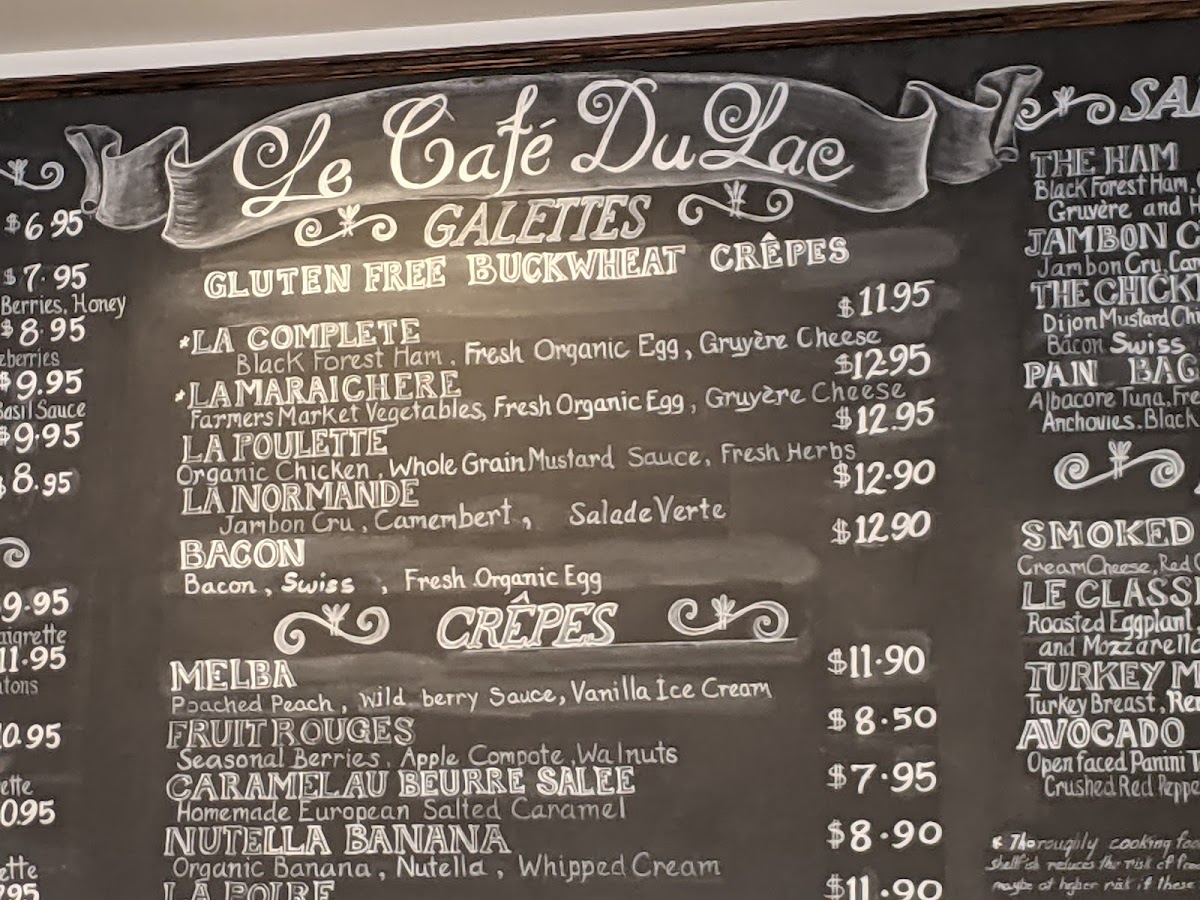 Le Café Du Lac
GALETTES
GLUTEN FREE BUCKWHEAT CRÊPES
$11.95
*LA COMPLETE
Black Forest Ham. Fresh Organic Egg, Gruyère Cheese
$12.95
*LA MARAICHERE
Farmers Market Vegetables, Fresh Organic Egg, Gruyère Cheese
$12.95
LA POULETTE
Organic Chicken, Whole Grain Mustard Sauce, Fresh Herbs
$12.90
LA NORMANDE
Jambon Cru, Camembert, Salade Verte
$12.90
BACON
Bacon, Swiss, Fresh Organic Egg
CRÊPES
MELBA $11.90
Poached Peach, Wild berry Sauce, Vanilla Ice Cream
FRUIT ROUGES $8.50
Seasonal Berries, Apple Compote, Walnuts
CARAMEL AU BEURRE SALEE $7.95
Homemade European Salted Caramel
NUTELLA BANANA $8.90
Organic Banana, Nutella, Whipped Cream
LA POIRE $11.90
$6.95
$7.95
Berries, Honey
$8.95
$9.95
Basil Sauce
$9.95
$8.95
9.95
11.95
0.95
0.95
THE HAM
Black Forest Ham
Gruyère and
JAMBON
Jambon Cru
THE
Dijon Mustard
Bacon Swiss
PAN
Albacore Tuna,
Anchovies. Black
SMOKED
Cream Cheese, Red
LE
Roasted Eggplant
and
TURKEY
Turkey Breast,
AVOCADO
Open faced Panini
Crushed Red
* Thoroughly cooking
shellfish reduces the risk of
maybe at higher risk if these